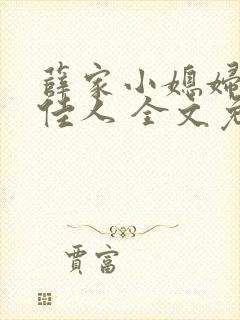 薛家小媳妇
佳人 全文免
贾富